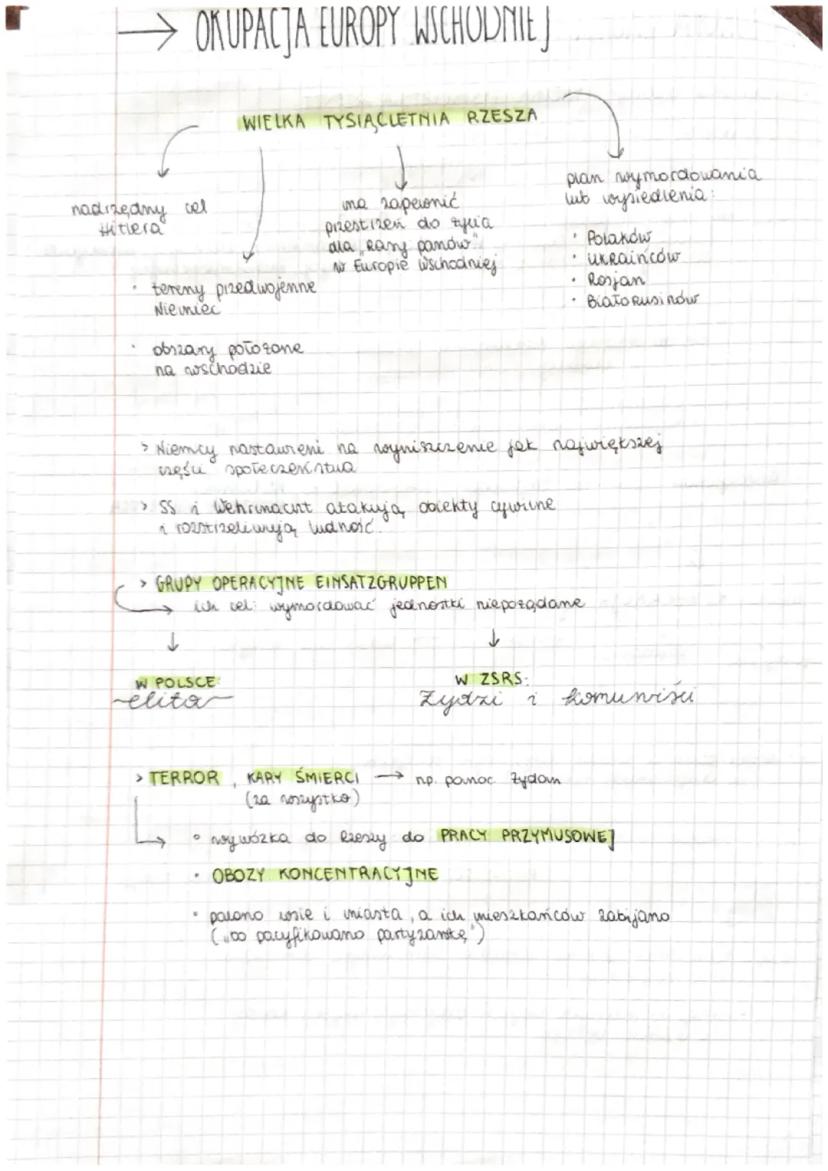 → OKUPACJA EUROPY WSCHODNIEJ
WIELKA TYSIĄCLETNIA RZESZA
nadrzędny cel
Hitlera
• tereny przedwojenne
Niemiec
• obszary położone
na wschodzie
ma zapewnić
przestrzeń do życia
dla "Rasy panów"
w Europie Wschodniej
plan wymordowania
lub wysiedlenia:
• Polaków
• Ukraińców
• Rosjan
• Białorusinów
> Niemcy nastawieni na wyniszczenie jak największej
części społeczeństwa
> SS i Wehrmacht atakują obiekty cywilne
i rozstrzeliwują ludność.
> GRUPY OPERACYJNE EINSATZGRUPPEN
→ ich cel: wymordować jednostki niepożądane
↓ ↓
W POLSCE:
~elita~
W ZSRS:
Żydzi i komuniści
> TERROR, KARY ŚMIERCI → np. pomoc Żydom
(za wszystko)
• wywózka do Rzeszy do PRACY PRZYMUSOWEJ
• OBOZY KONCENTRACYJNE
• palono wsie i miasta, a ich mieszkańców zabijano
("bo pacyfikowano partyzantkę")